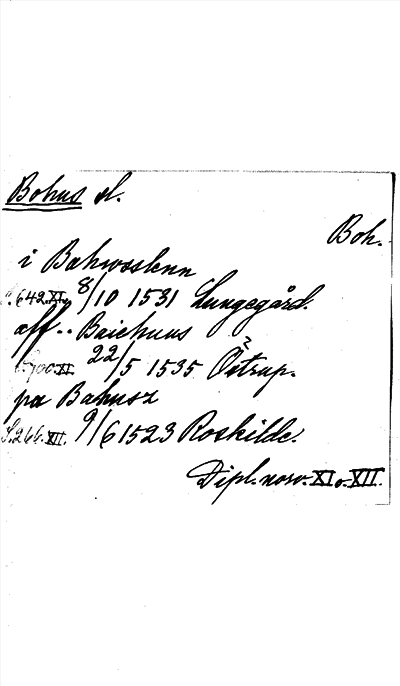 Bohus sl.
Boh.
i Bahwsslenn
S. 642. XI. 8/10 1531 Lungegård.
aff .. Baiehuus
S. 700. XI. 22/5 1535 Östrup.
?
pa Bahusz
S. 266. XII. 9/6 1523 Roskilde.
Dipl. norv. XI o. XII.